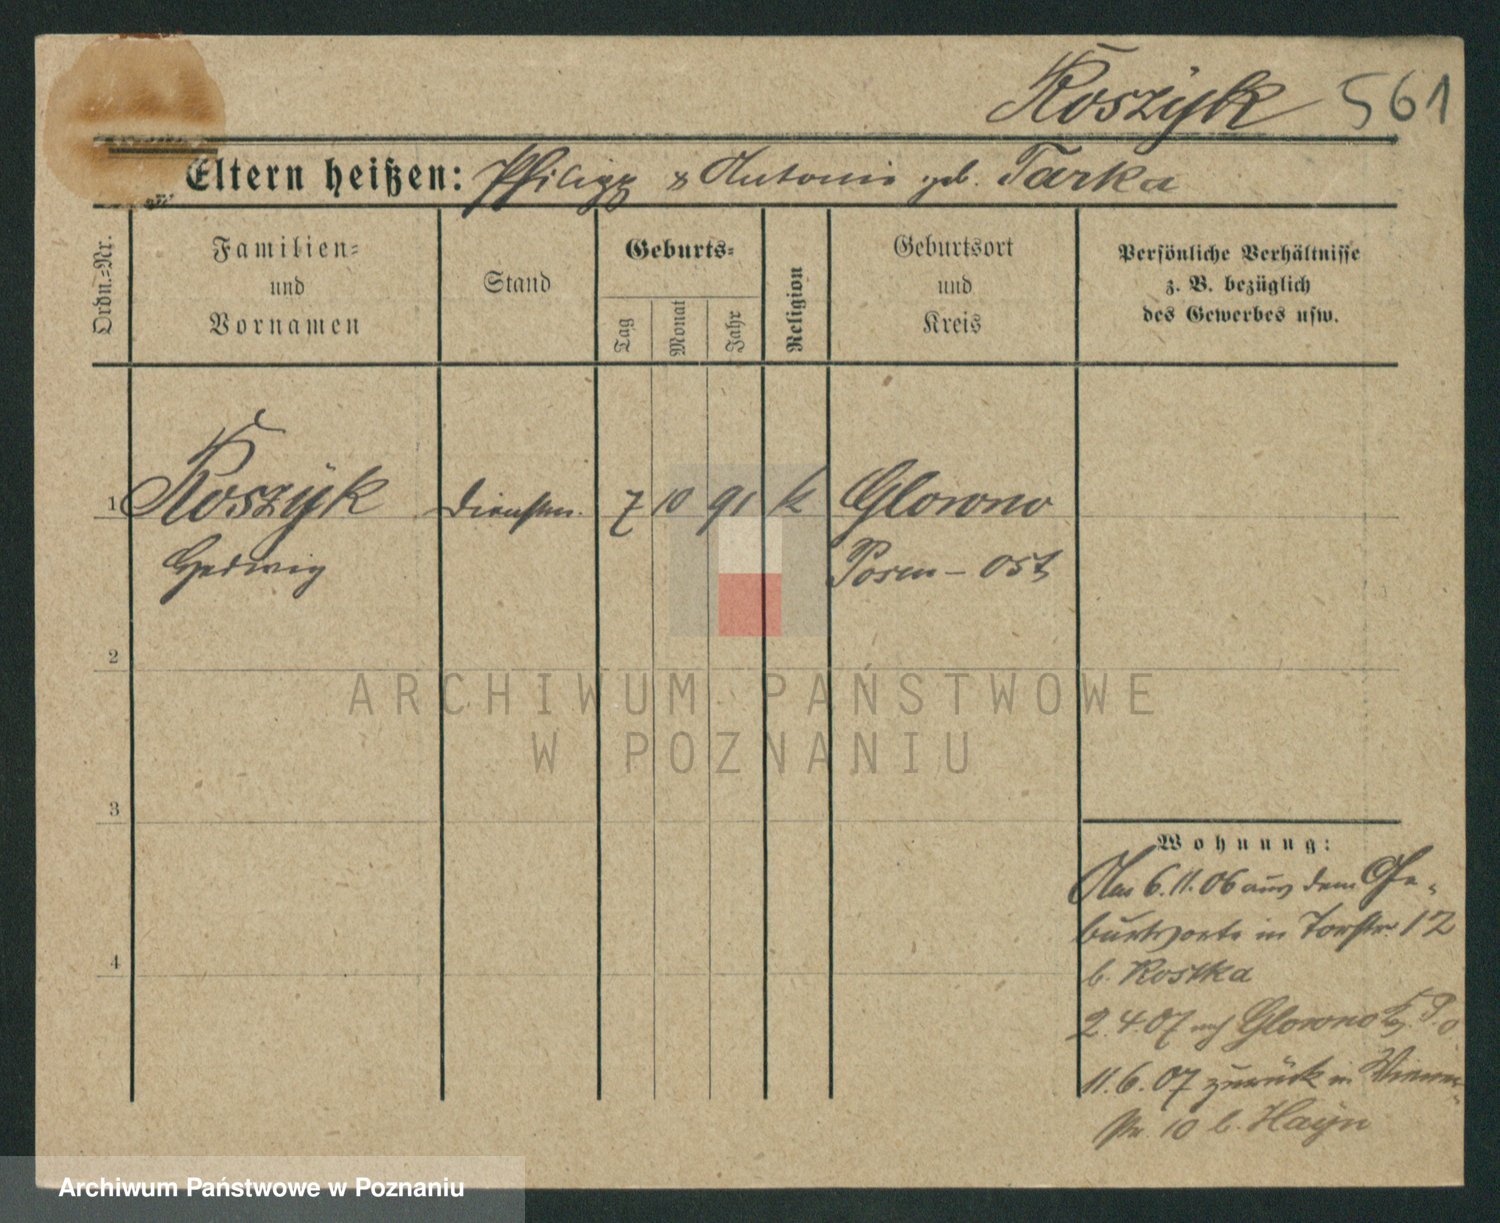 Koszÿk 561
Eltern heißen: Philipp & Antonie geb. Tarka
Ordn.=Nr.
Familien=
und
Vornamen
Stand
Geburts=
Tag
Monat
Jahr
Religion
Geburtsort
und
Kreis
Persönliche Verhältnisse
z. B. bezüglich
des Gewerbes usw.
1 Koszÿk Dienstm. 7 10 91 k Glowno
Hedwig Posen - Ost
2
3
4
Wohnung:
6.11.06 aus dem Ge-
burtsorte in Torstr. 12
b. Kostka
2.4.07 nch Glowno P. O
11.6.07 zurück in Wiener-
str. 10 b. Hayn
ARCHIWUM PAŃSTWOWE
W POZNANIU
Archiwum Państwowe w Poznaniu